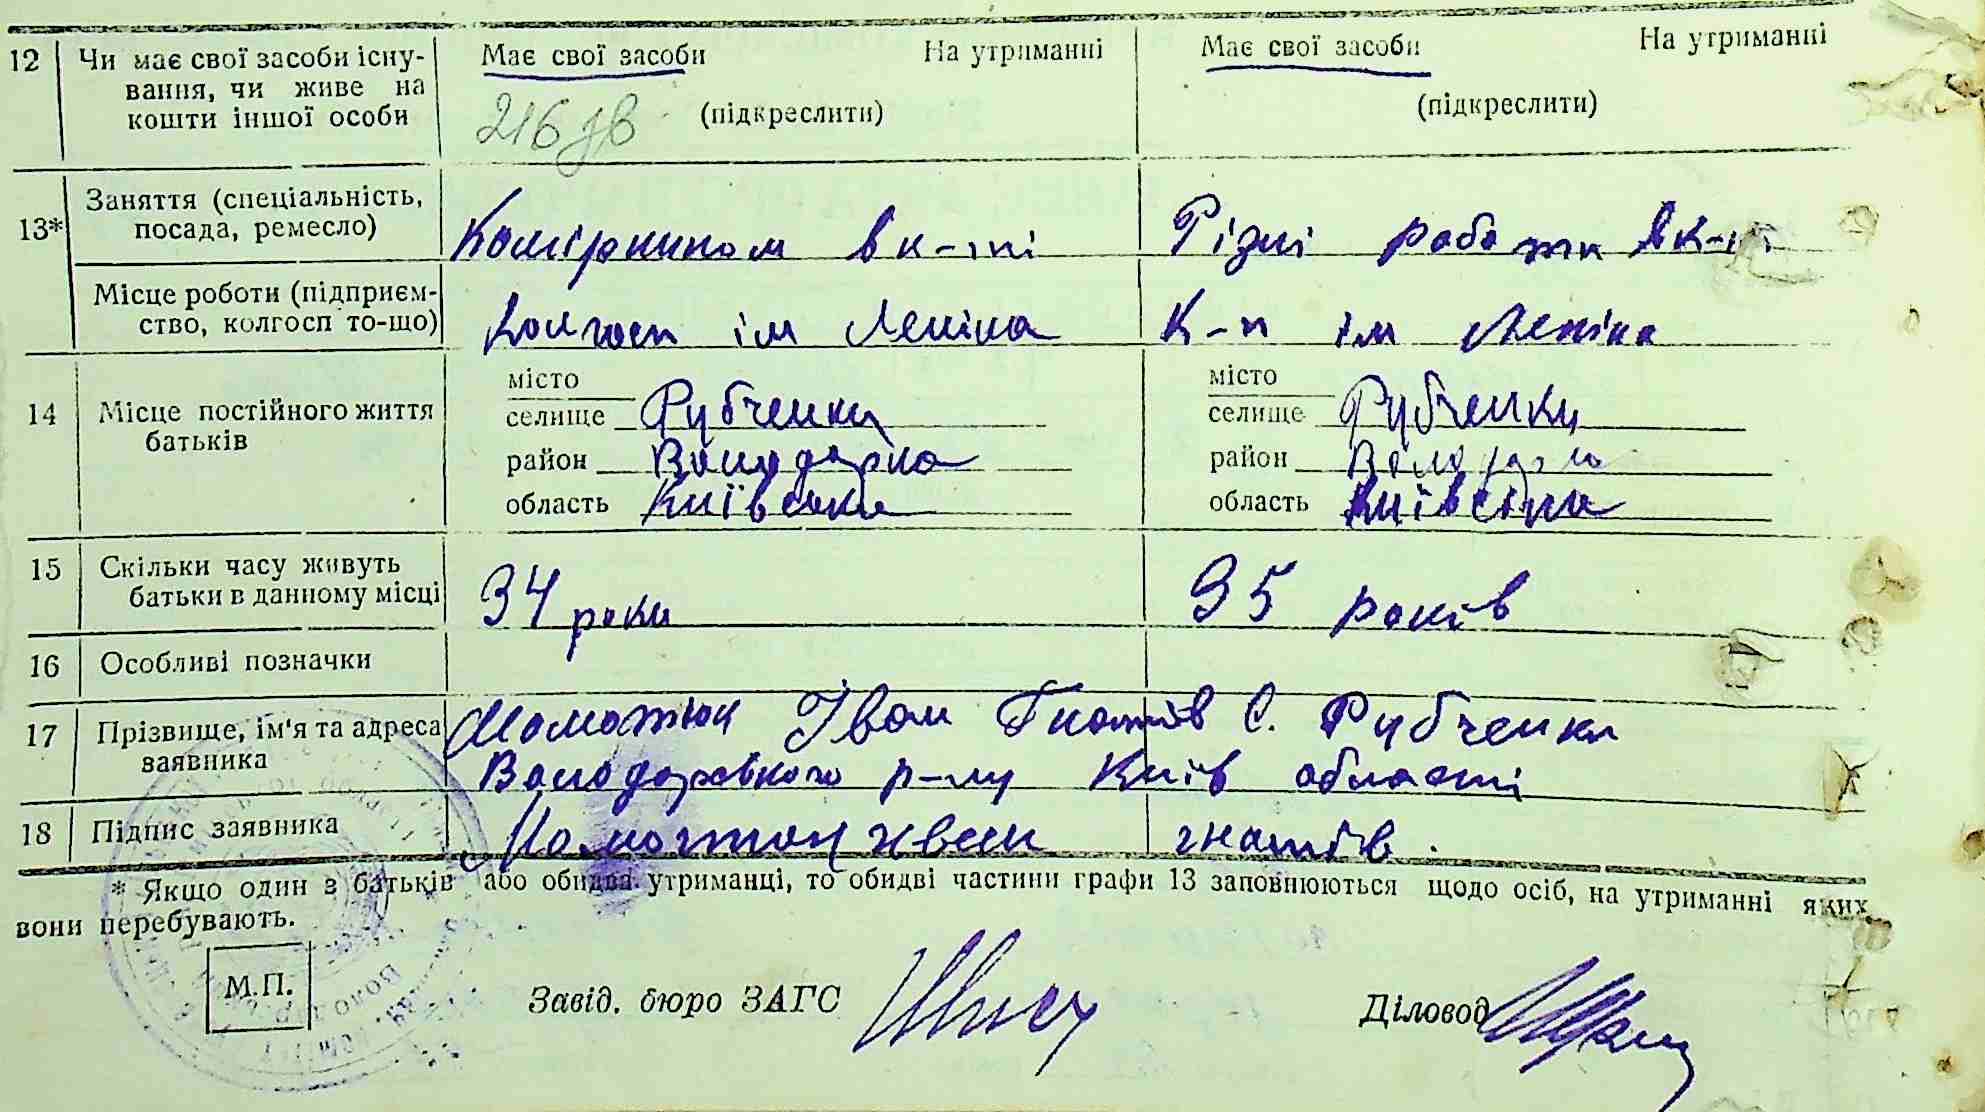 12 Чи має свої засоби існу- Має свої засоби На утриманні Має свої засоби На утриманні
вання, чи живе на
кошти іншої особи 216 (підкреслити) (підкреслити)
13* Заняття (спеціальність,
посада, ремесло) Комірником в к-пі Різні роботи в к-пі
Місце роботи (підприєм-
ство, колгосп то-що) Колгосп ім Леніна К-п ім Леніна
місто місто
14 Місце постійного життя селище Рубченки селище Рубченки
батьків район Володарка район
область Київська область Київська
15 Скільки часу живуть
батьки в данному місці 34 роки 35 років
16 Особливі позначки
17 Прізвище, ім'я та адреса Іван Гнатів С. Рубченки
заявника Володарського р-ну Київ області
18 Підпис заявника гнатів.
* Якщо один з батьків або обидва утриманці, то обидві частини графи 13 заповнюються щодо осіб, на утриманні яких
вони перебувають.
М.П. Завід. бюро ЗАГС Діловод